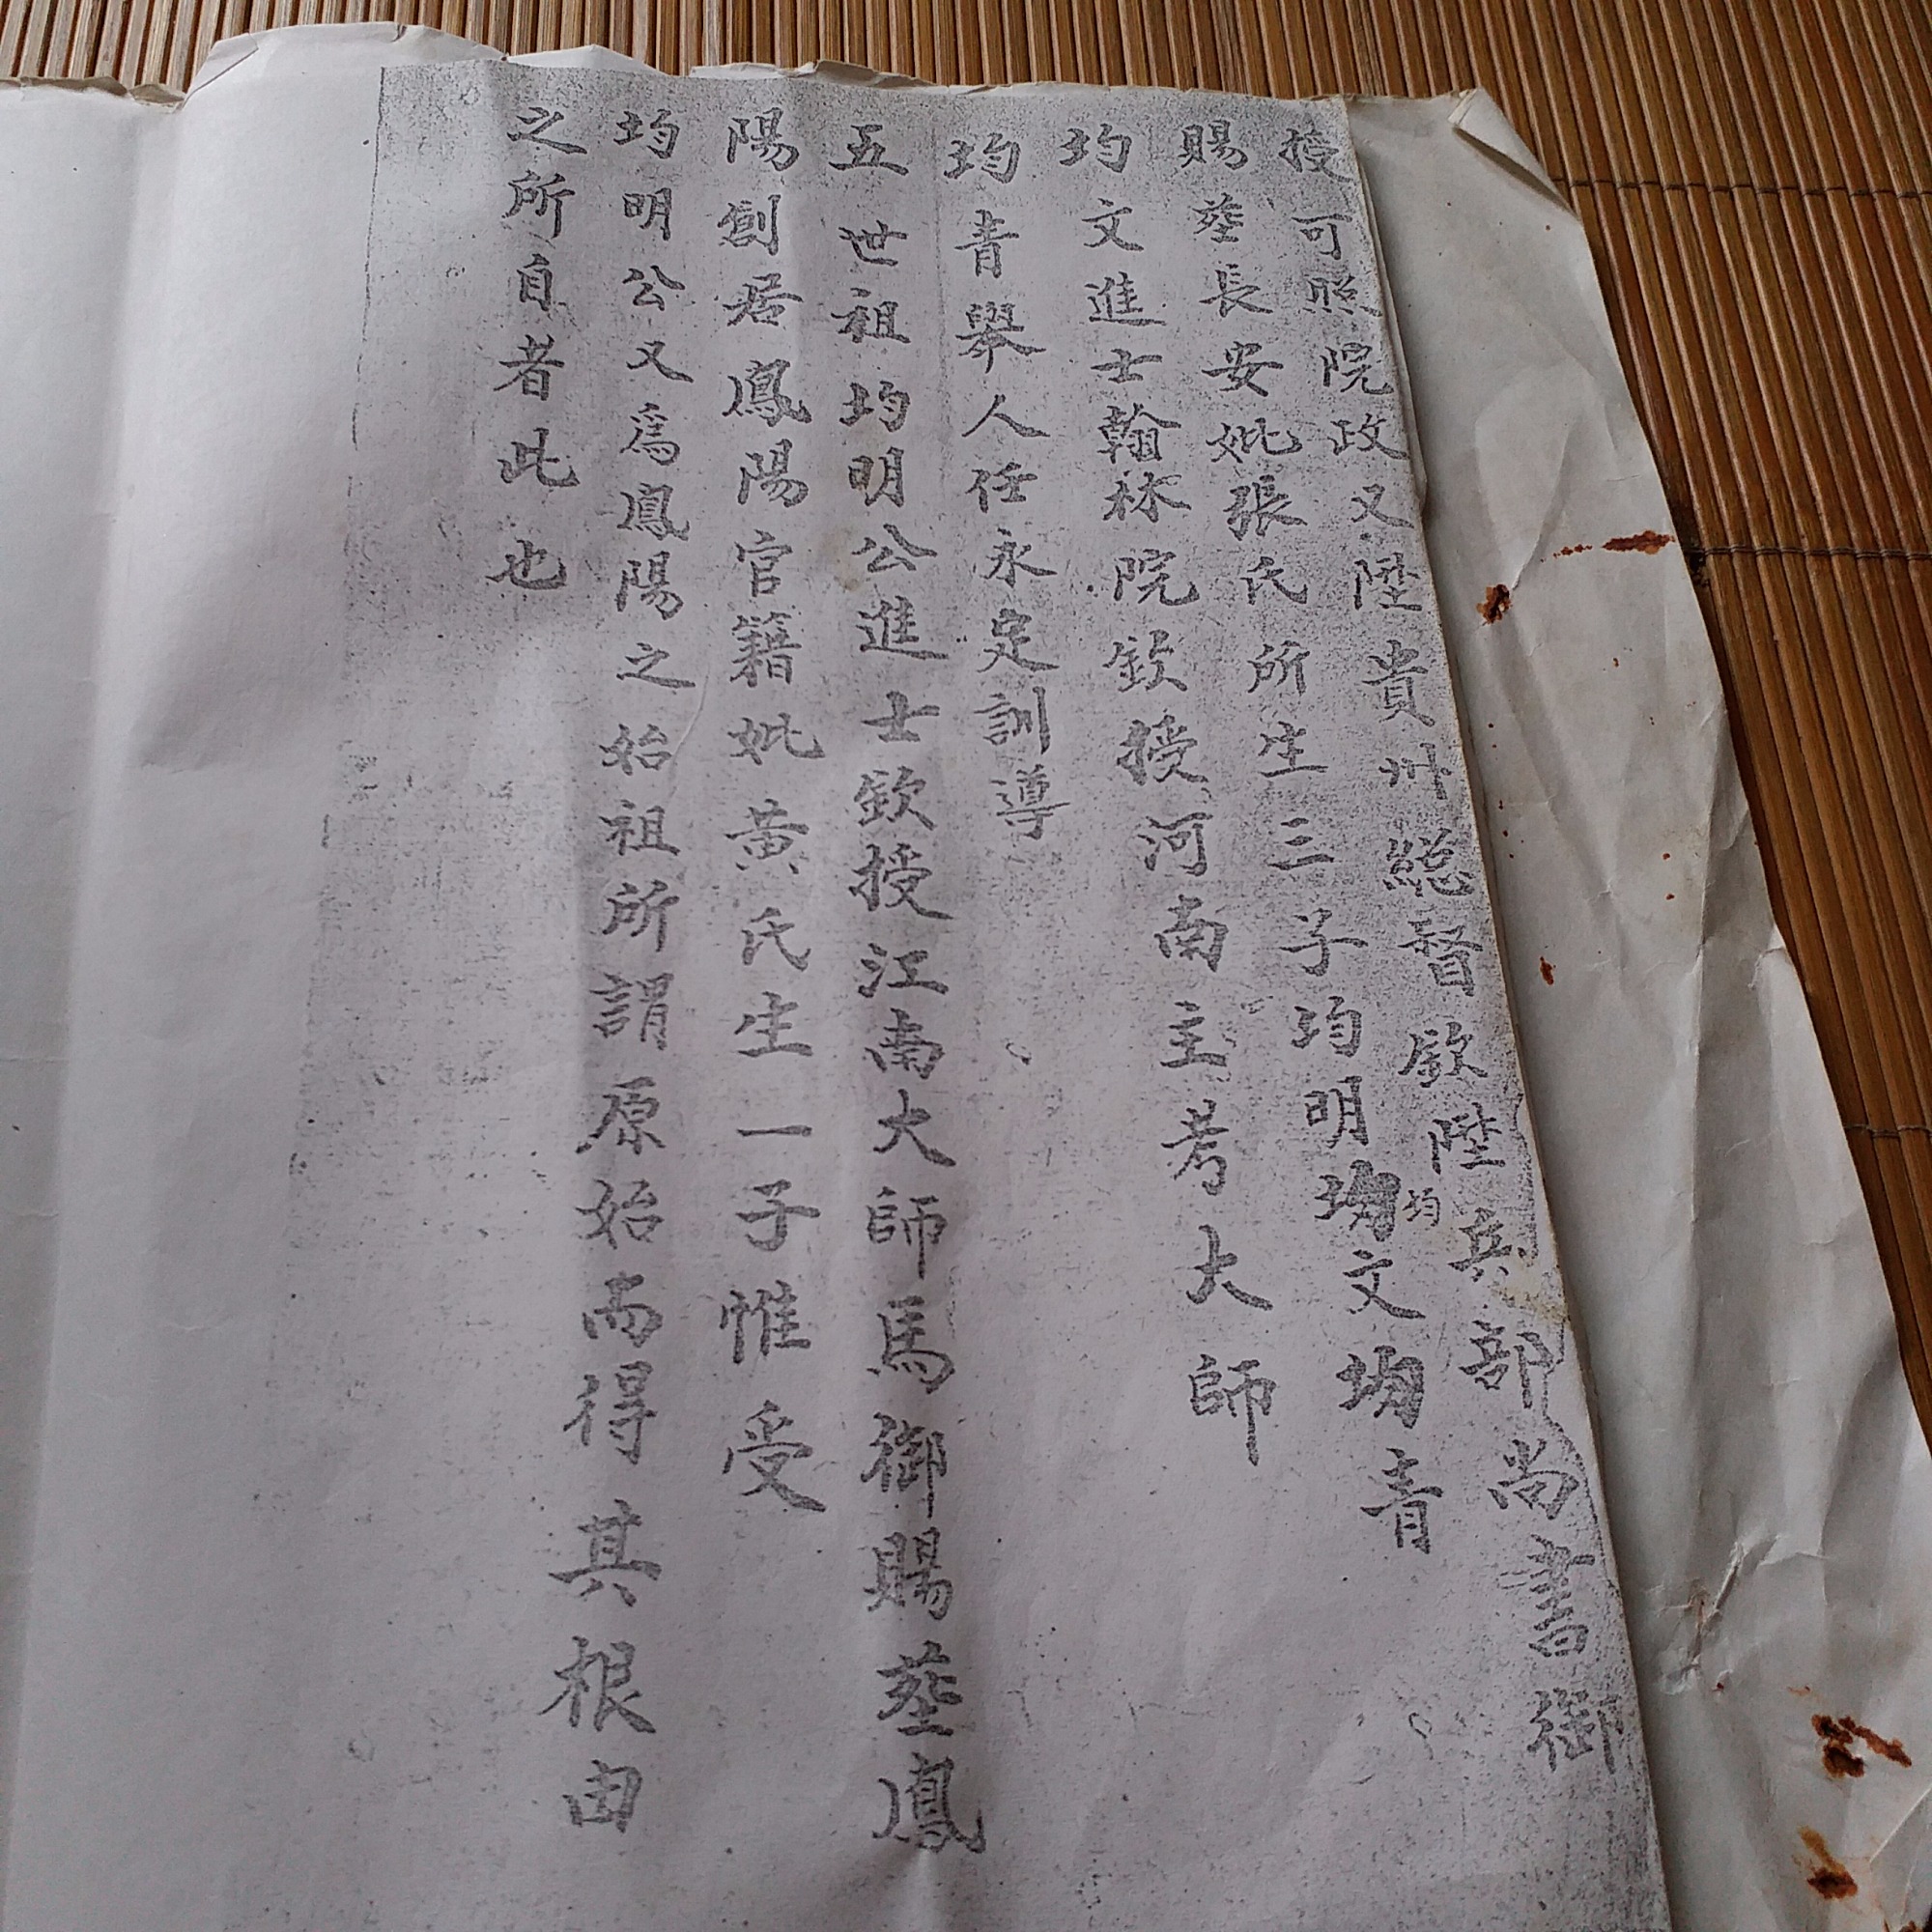 授可照院政又陞貴州總督欽陞兵部尚書御
賜塟長安妣張氏所生三子均明均文均青
均
均文進士翰林院欽授河南主考大師
均青舉人任永定訓導
五世祖均明公進士欽授江南大師馬御賜塟鳳
陽創居鳳陽官籍妣黃氏生一子惟受
均明公又為鳳陽之始祖所謂原始而得其根由
之所自者此也